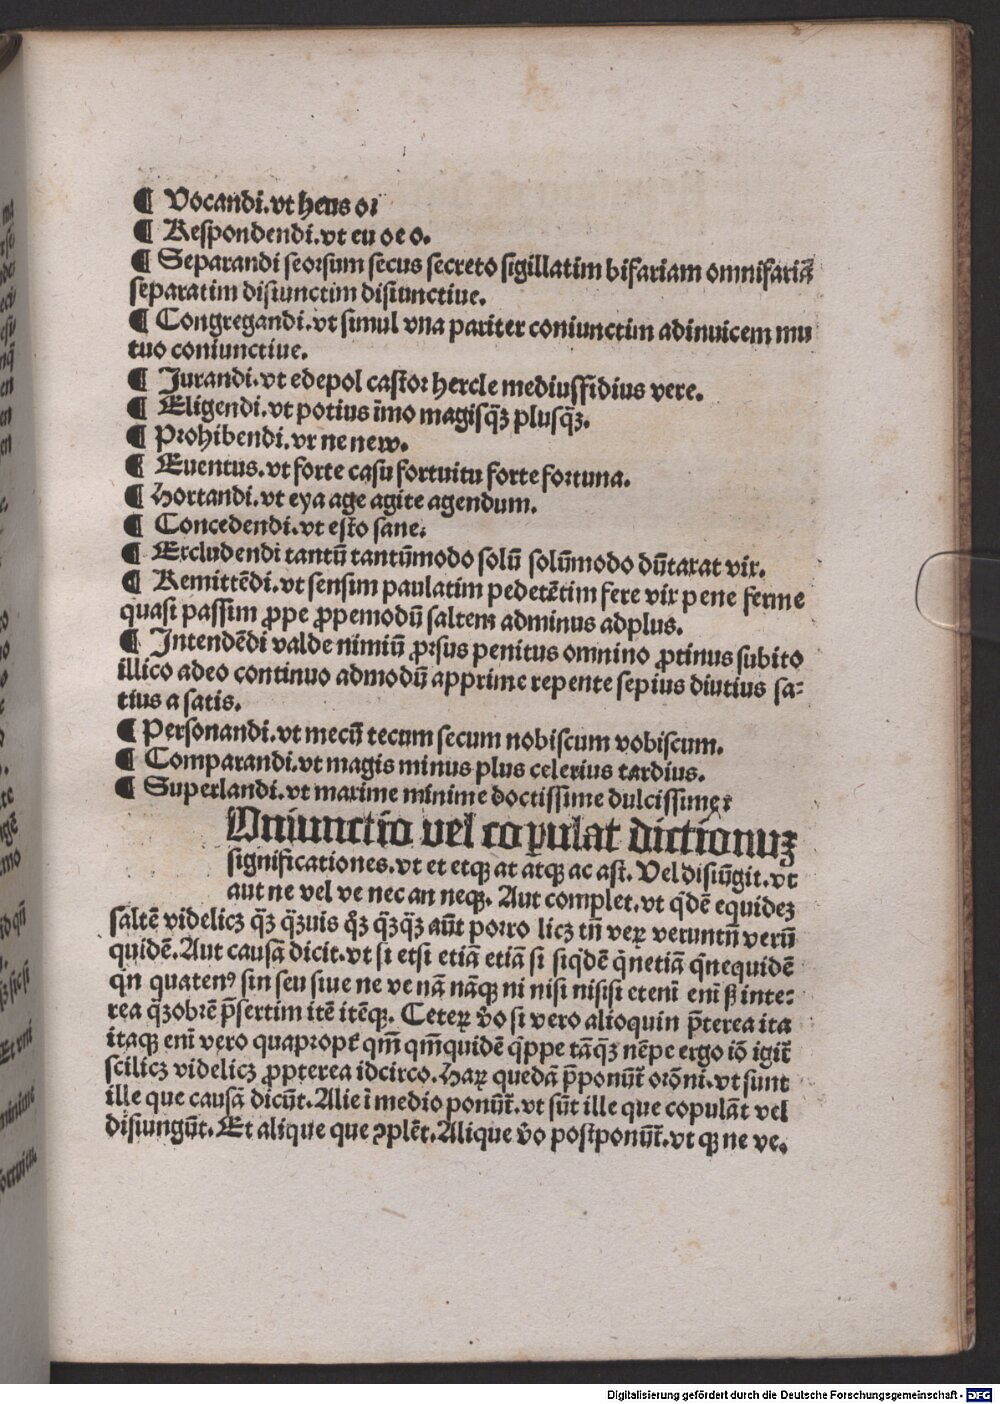 ¶ Vocandi.vt heus o:
¶ Respondendi.vt eu oe o.
¶ Separandi seorsum secus secreto sigillatim bifariam omnifariā
separatim disiunctim disiunctiue.
¶ Congregandi.vt simul vna pariter coniunctim adinuicem mu
tuo coniunctiue.
¶ Jurandi.vt edepol castor hercle mediussidius vere.
¶ Eligendi.vt potius īmo magisq̄ꝫ plusq̄ꝫ.
¶ Prohibendi.vr ne new.
¶ Euentus.vt forte casu fortuitu forte fortuna.
¶ Hortandi.vt eya age agite agendum.
¶ Concedendi.vt esto sane.
¶ Excludendi tantū tantūmodo solū solūmodo dūtaxat vix.
¶ Remittēdi.vt sensim paulatim pedetētim fere vix pene ferme
quasi passim ꝓpe ꝓpemodū saltem adminus adplus.
¶ Intendēdi valde nimiū ꝓrsus penitus omnino ꝓtinus subito
illico adeo continuo admodū apprime repente sepius diutius sa⸗
tius a satis.
¶ Personandi.vt mecū tecum secum nobiscum vobiscum.
¶ Comparandi.vt magis minus plus celerius tardius.
¶ Superlandi.vt maxime minime doctissime dulcissime:
Oniunctio vel copulat dictionuꝫ
significationes.vt et etqꝫ at atqꝫ ac ast. Vel disiūgit.vt
aut ne vel ve nec an neqꝫ. Aut complet.vt qͥdē equideꝫ
saltē videlicꝫ q̄ꝫ q̄ꝫuis qͣ̊ꝫ q̄ꝫq̄ꝫ aūt porro licꝫ tn̄ veꝝ veruntn̄ verū
quidē.Aut causā dicit.vt si etsi etiā etiā si siqͥdē qͥnetiā qͥnequidē
qͥn quatenꝰ sin seu siue ne ve nā nāqꝫ ni nisi nisisi etenī enī ß inte⸗
rea q̄ꝫobrē p̄sertim itē itēqꝫ. Ceteꝝ v̊o si vero alioquin p̄terea ita
itaqꝫ enī vero quapropt̄ qm̄ qm̄quidē qͥppe tāq̄ꝫ nēpe ergo iō igit̄
scilicꝫ videlicꝫ ꝓpterea idcirco.Haꝝ quedā p̄ponūt̄ orōni.vt sunt
ille que causā dicūt.Alie ī medio ponūt̄.vt sūt ille que copulāt vel
disiungūt.Et alique que ꝯplēt.Alique v̊o postponūt̄.vt qꝫ ne ve.
Digitalisierung gefördert durch die Deutsche Forschungsgemeinschaft - DFG